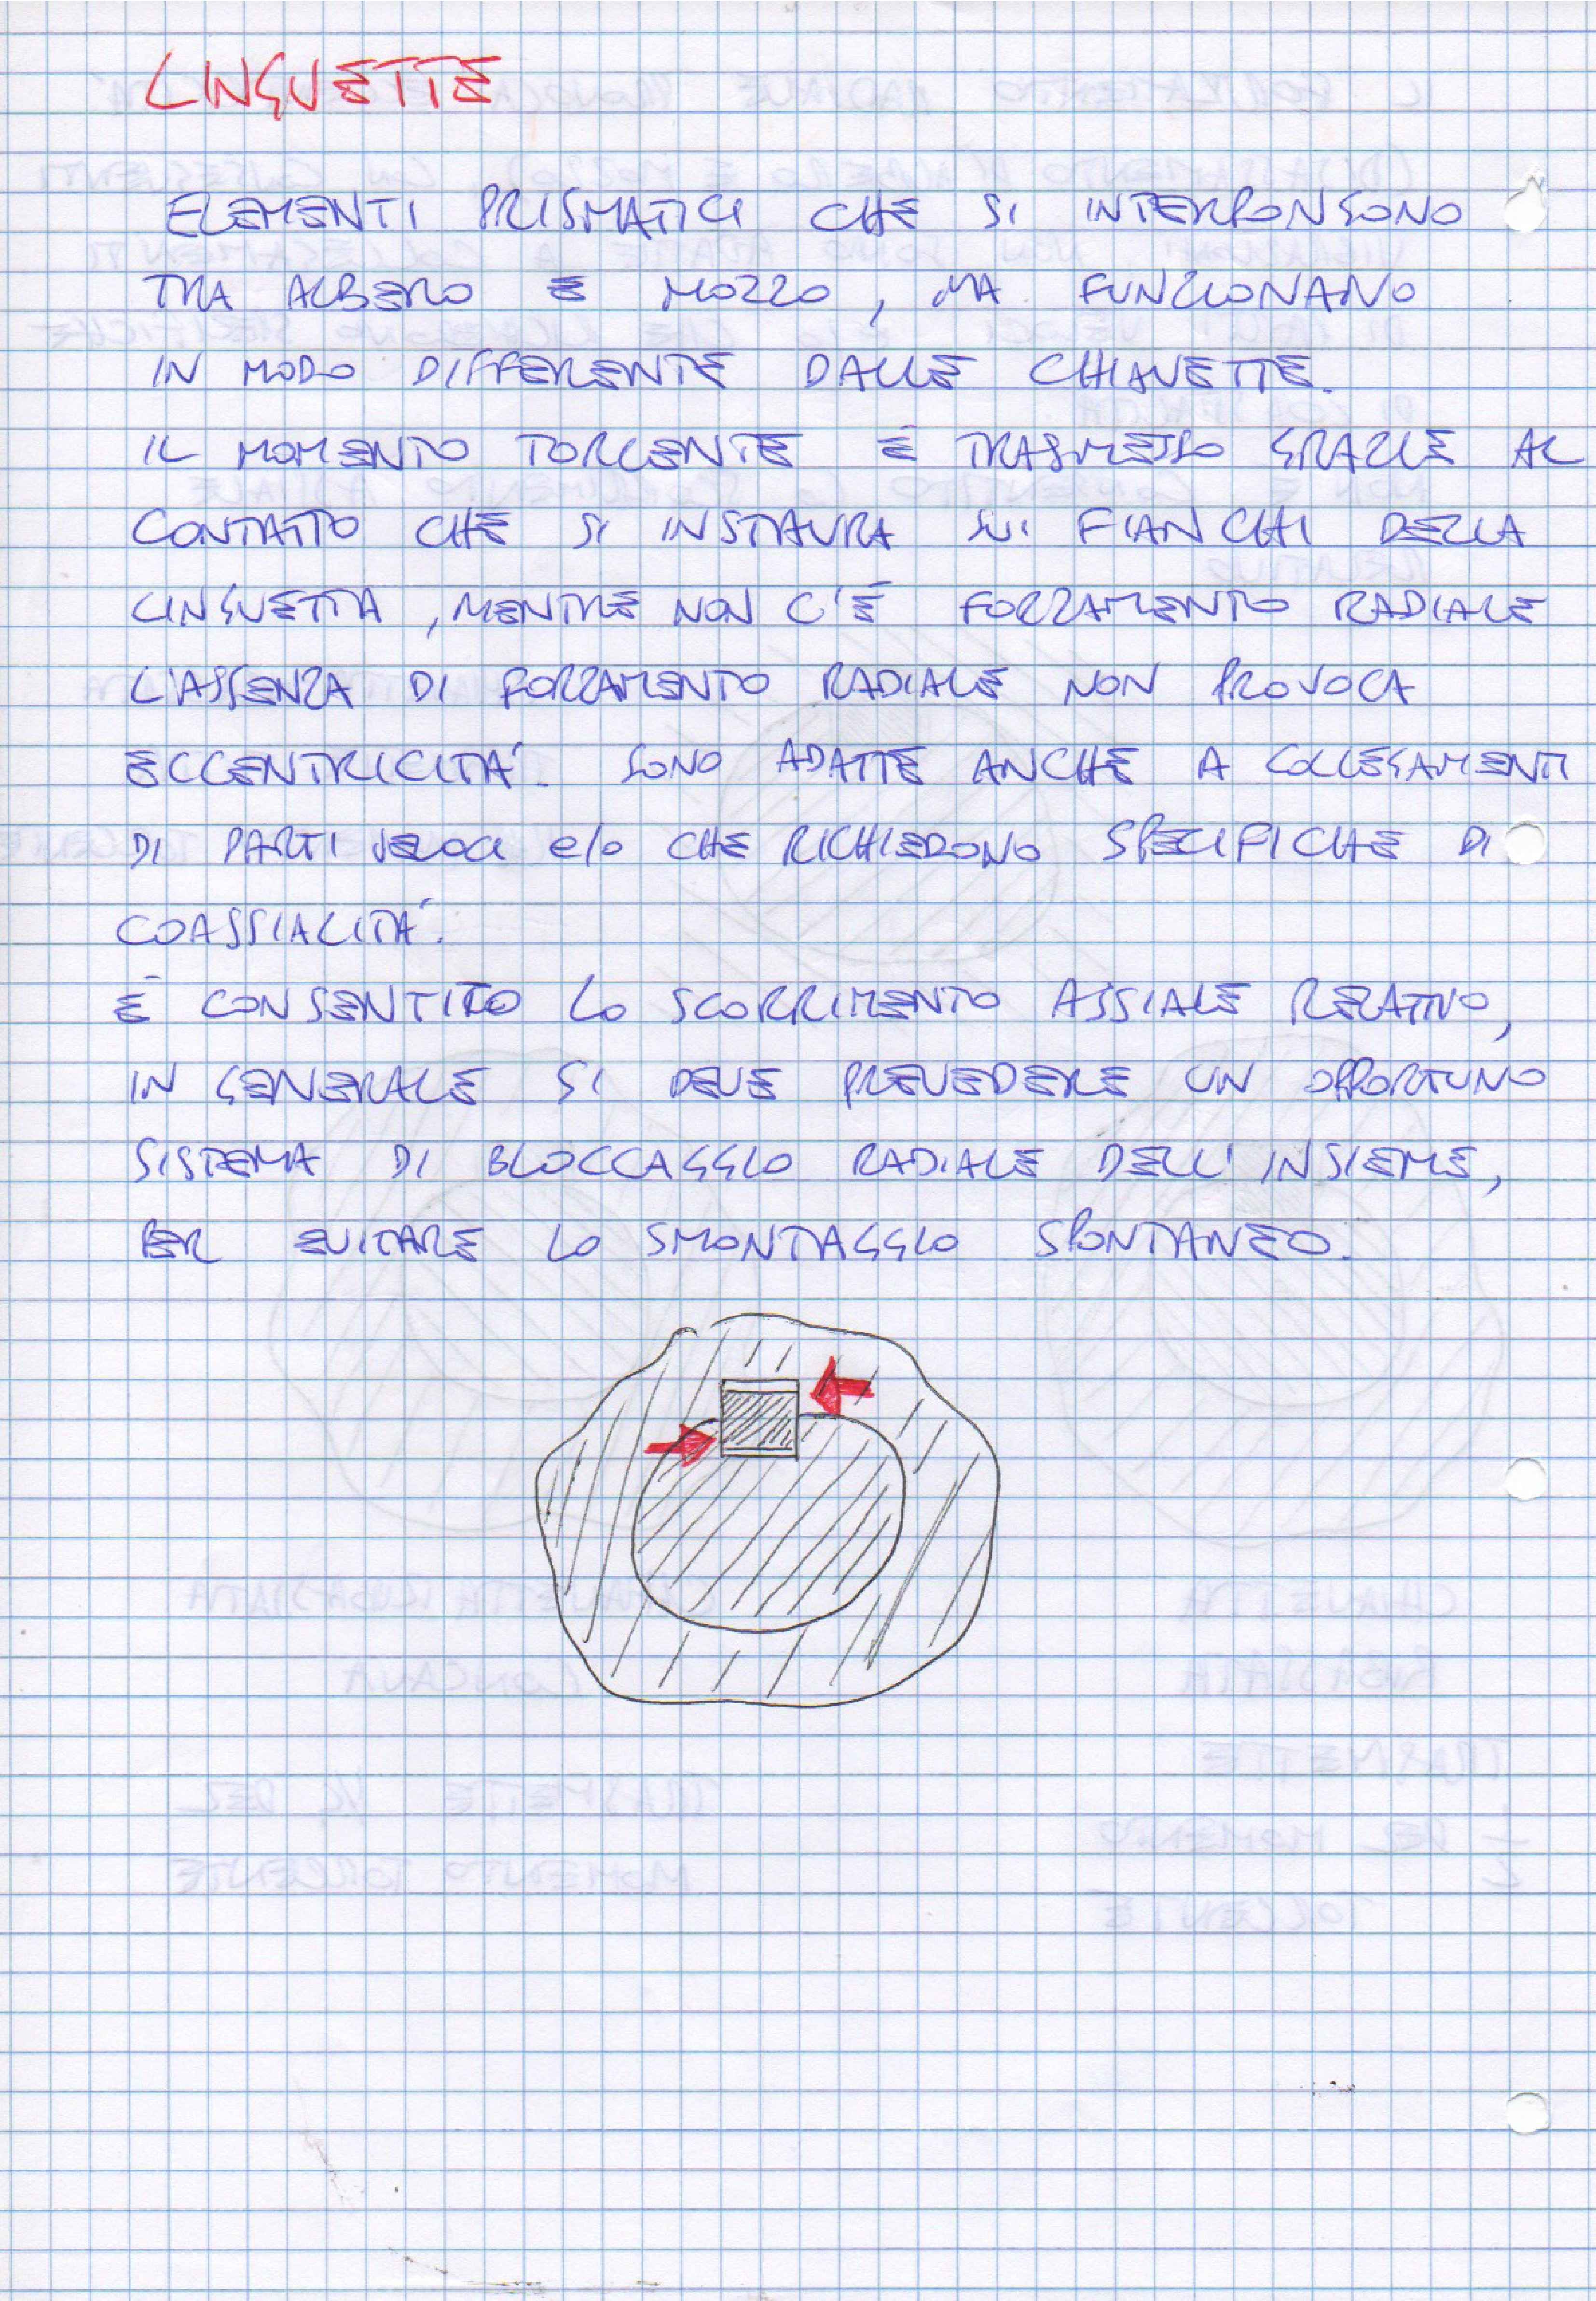 LINGUETTE
ELEMENTI PRISMATICI CHE SI INTERPONGONO
TRA ALBERO E MOZZO, MA FUNZIONANO
IN MODO DIFFERENTE DALLE CHIAVETTE.
IL MOMENTO TORCENTE È TRASMESSO GRAZIE AL
CONTATTO CHE SI INSTAURA SUI FIANCHI DELLA
LINGUETTA, MENTRE NON C'È FORZAMENTO RADIALE
L'ASSENZA DI FORZAMENTO RADIALE NON PROVOCA
ECCENTRICITÀ. SONO ADATTE ANCHE A COLLEGAMENTI
DI PARTI VELOCI e/o CHE RICHIEDONO SPECIFICHE DI
COASSIALITÀ.
È CONSENTITO LO SCORRIMENTO ASSIALE RELATIVO,
IN GENERALE SI DEVE PREVEDERE UN OPPORTUNO
SISTEMA DI BLOCCAGGIO RADIALE DELL'INSIEME,
PER EVITARE LO SMONTAGGIO SPONTANEO.